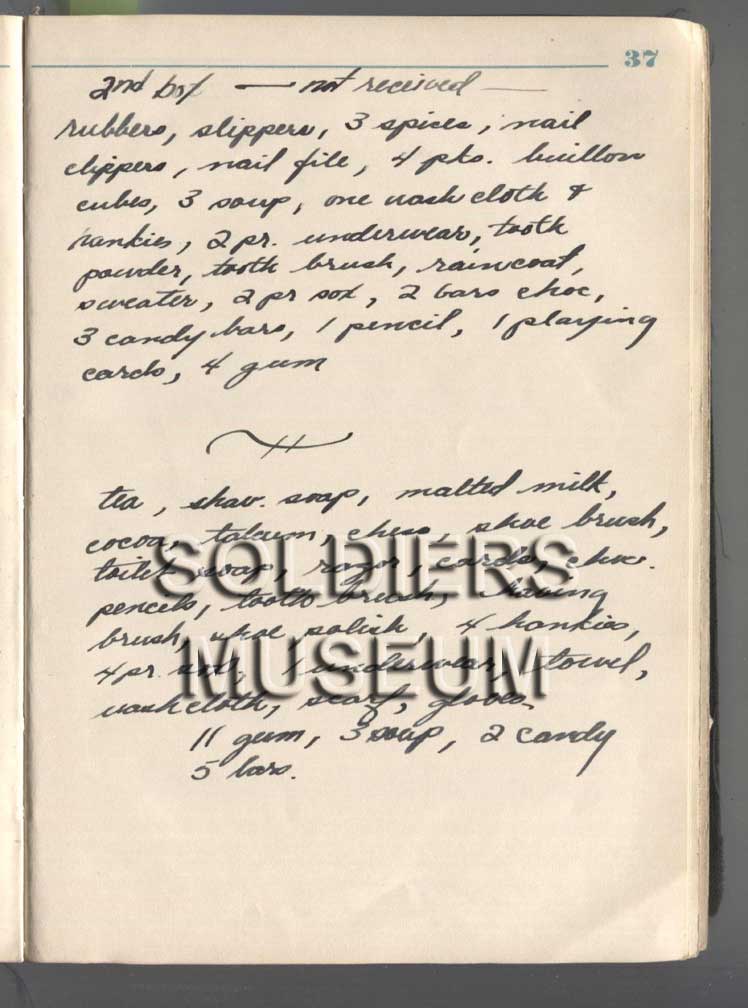 37
2nd box — not received —
rubbers, slippers, 3 spices, nail
clippers, nail file, 4 pks. buillon
cubes, 3 soup, one wash cloth &
hankies, 2 pr. underwear, tooth
powder, tooth brush, raincoat,
sweater, 2 pr sox, 2 bars choc,
3 candy bars, 1 pencil, 1 playing
cards, 4 gum
tea, shav. soap, malted milk,
cocoa, talcum, chess, shoe brush,
toilet soap, razor, cards, choc.
pencils, tooth brush, shaving
brush, shoe polish, 4 hankies,
4 pr. sox, 1 underwear, 1 towel,
washcloth, scarf, gloves,
11 gum, 3 soup, 2 candy
5 bars.
SOLDIERS
MUSEUM